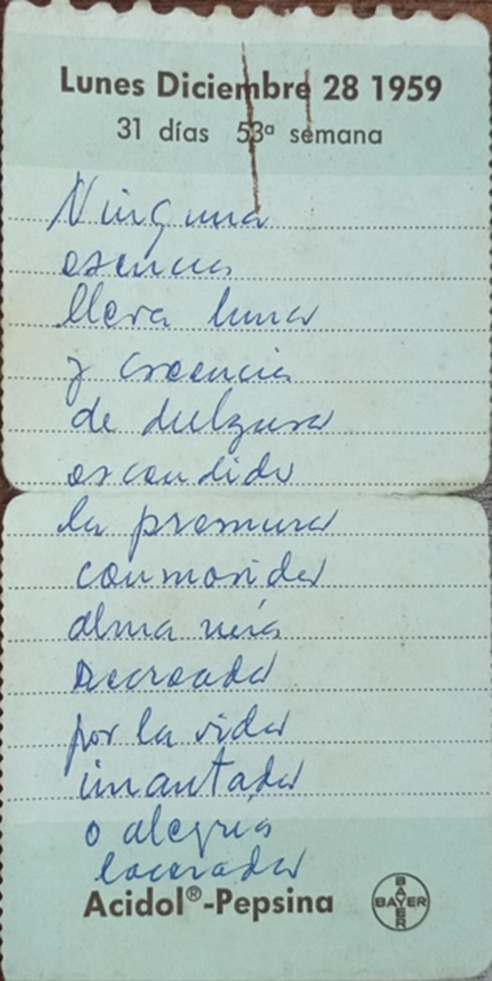 Lunes Diciembre 28 1959
31 días 53ª semana
Ninguna
esencia
lleva luna
y creencia
de dulzura
escondida
la premura
conmovida
alma mía
recreada
por la vida
imantada
o alegría
lacerada
Acidol®-Pepsina
BAYER
BAYER